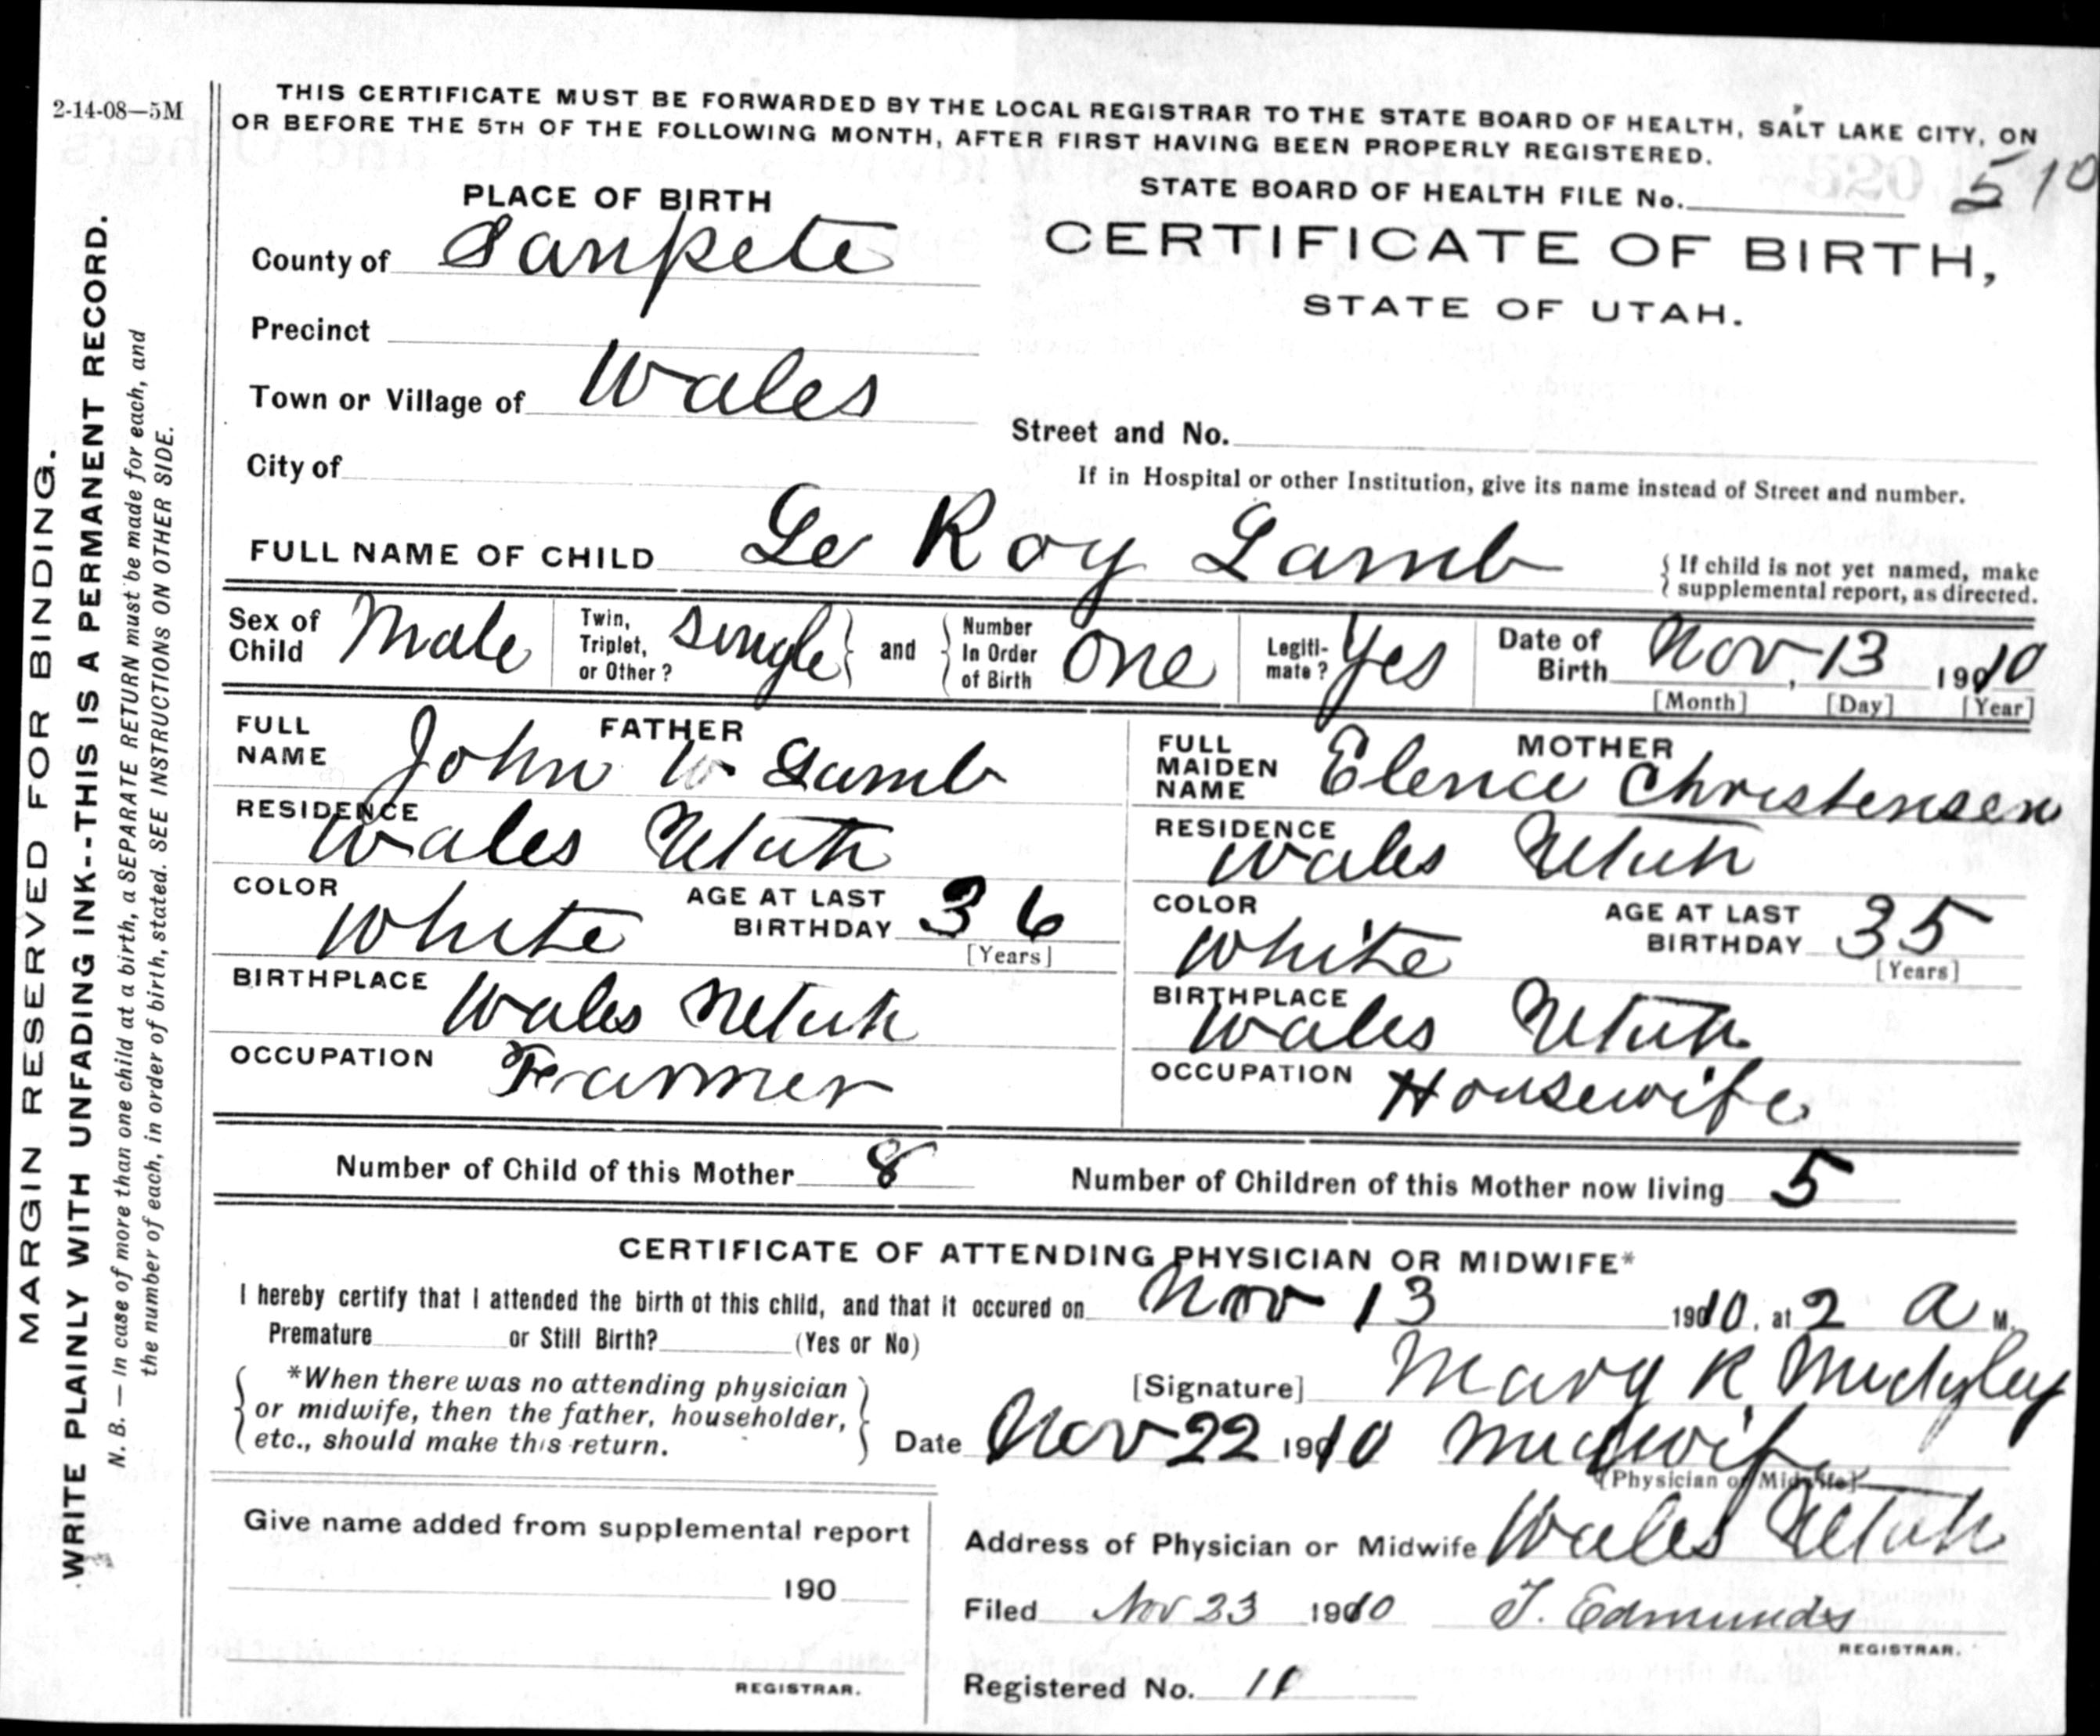 2-14-08—5M
THIS CERTIFICATE MUST BE FORWARDED BY THE LOCAL REGISTRAR TO THE STATE BOARD OF HEALTH, SALT LAKE CITY, ON
OR BEFORE THE 5TH OF THE FOLLOWING MONTH, AFTER FIRST HAVING BEEN PROPERLY REGISTERED.
MARGIN RESERVED FOR BINDING.
WRITE PLAINLY WITH UNFADING INK--THIS IS A PERMANENT RECORD.
N. B. — In case of more than one child at a birth, a SEPARATE RETURN must be made for each, and
the number of each, in order of birth, stated. SEE INSTRUCTIONS ON OTHER SIDE.
PLACE OF BIRTH
STATE BOARD OF HEALTH FILE No. 510
CERTIFICATE OF BIRTH,
STATE OF UTAH.
County of Sanpete
Precinct
Town or Village of Wales
Street and No.
City of
If in Hospital or other Institution, give its name instead of Street and number.
FULL NAME OF CHILD Le Roy Lamb
{ If child is not yet named, make
supplemental report, as directed.
Sex of Child Male
Twin, Triplet, or Other? Single } and { Number In Order of Birth One
Legiti-mate? Yes
Date of Birth Nov, 13 1910
[Month] [Day] [Year]
FATHER
FULL NAME John W Lamb
RESIDENCE Wales Utah
COLOR White
AGE AT LAST BIRTHDAY 36
[Years]
BIRTHPLACE Wales Utah
OCCUPATION Framer
MOTHER
FULL MAIDEN NAME Elence Christensen
RESIDENCE Wales Utah
COLOR White
AGE AT LAST BIRTHDAY 35
[Years]
BIRTHPLACE Wales Utah
OCCUPATION Housewife
Number of Child of this Mother 8 Number of Children of this Mother now living 5
CERTIFICATE OF ATTENDING PHYSICIAN OR MIDWIFE*
I hereby certify that I attended the birth of this child, and that it occured on Nov 13 1910, at 2 A M.
Premature or Still Birth? (Yes or No)
*When there was no attending physician
or midwife, then the father, householder,
etc., should make this return.
[Signature] Mary R Midgley
Date Nov 22 1910 Midwife
(Physician or Midwife)
Give name added from supplemental report
190
REGISTRAR.
Address of Physician or Midwife Wales Utah
Filed Nov 23 1910 T. Edmunds
REGISTRAR.
Registered No.